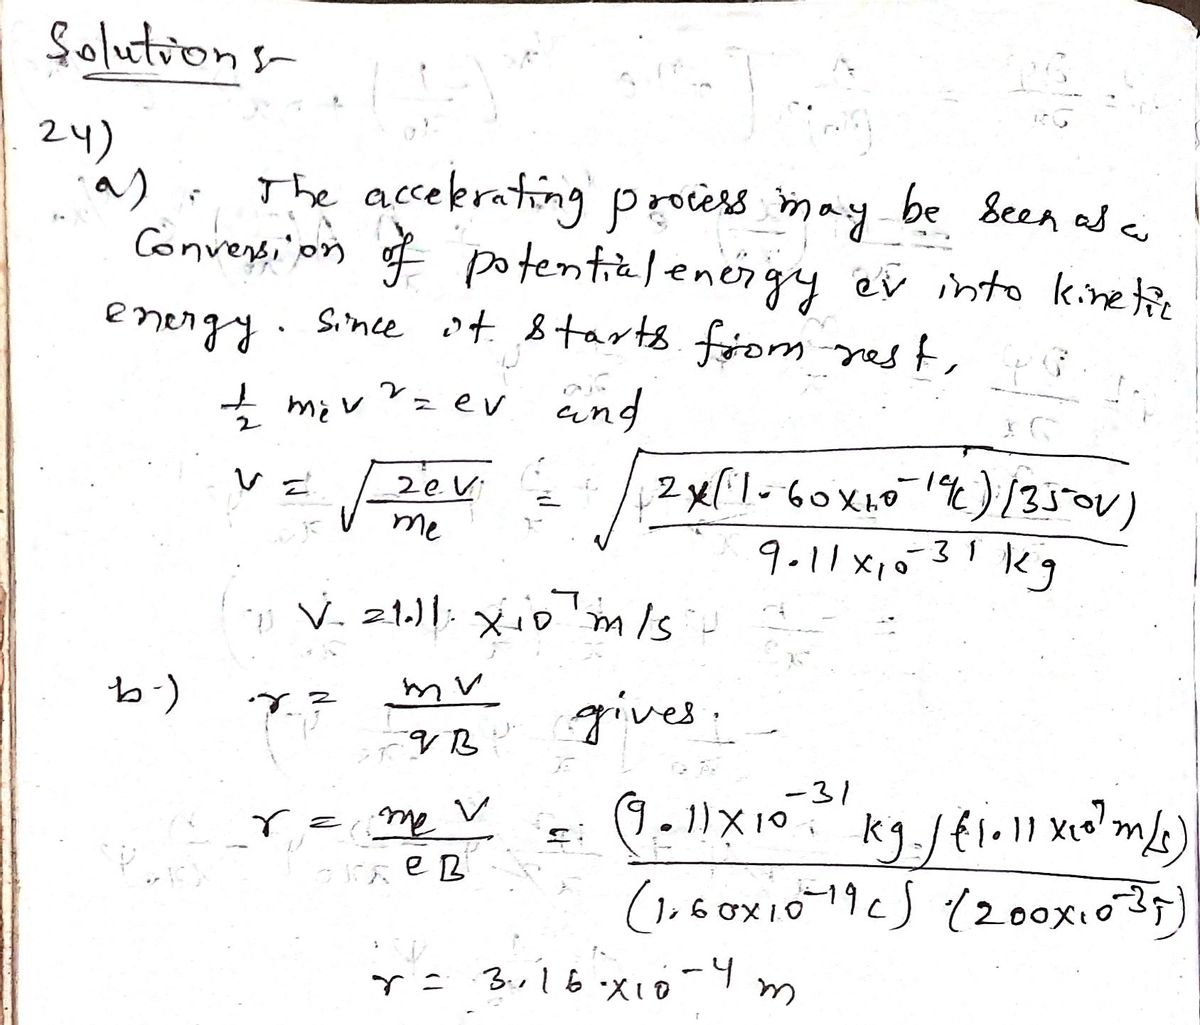 Solutions-
24)
a) The accelerating process may be seen as a
Conversion of potential energy ev into kinetic
energy. Since it starts from rest,
1/2 mev² = ev and
v = √(2ev/me) = √(2×(1.60×10⁻¹⁹C)(350V)/9.11×10⁻³¹ kg)
V = 1.11 ×10⁷ m/s
b-) r = mv/qB gives.
r = me v/eB = (9.11×10⁻³¹ kg)(1.11×10⁷ m/s)/(1.60×10⁻¹⁹C)(200×10⁻³T)
r = 3.16×10⁻⁴ m